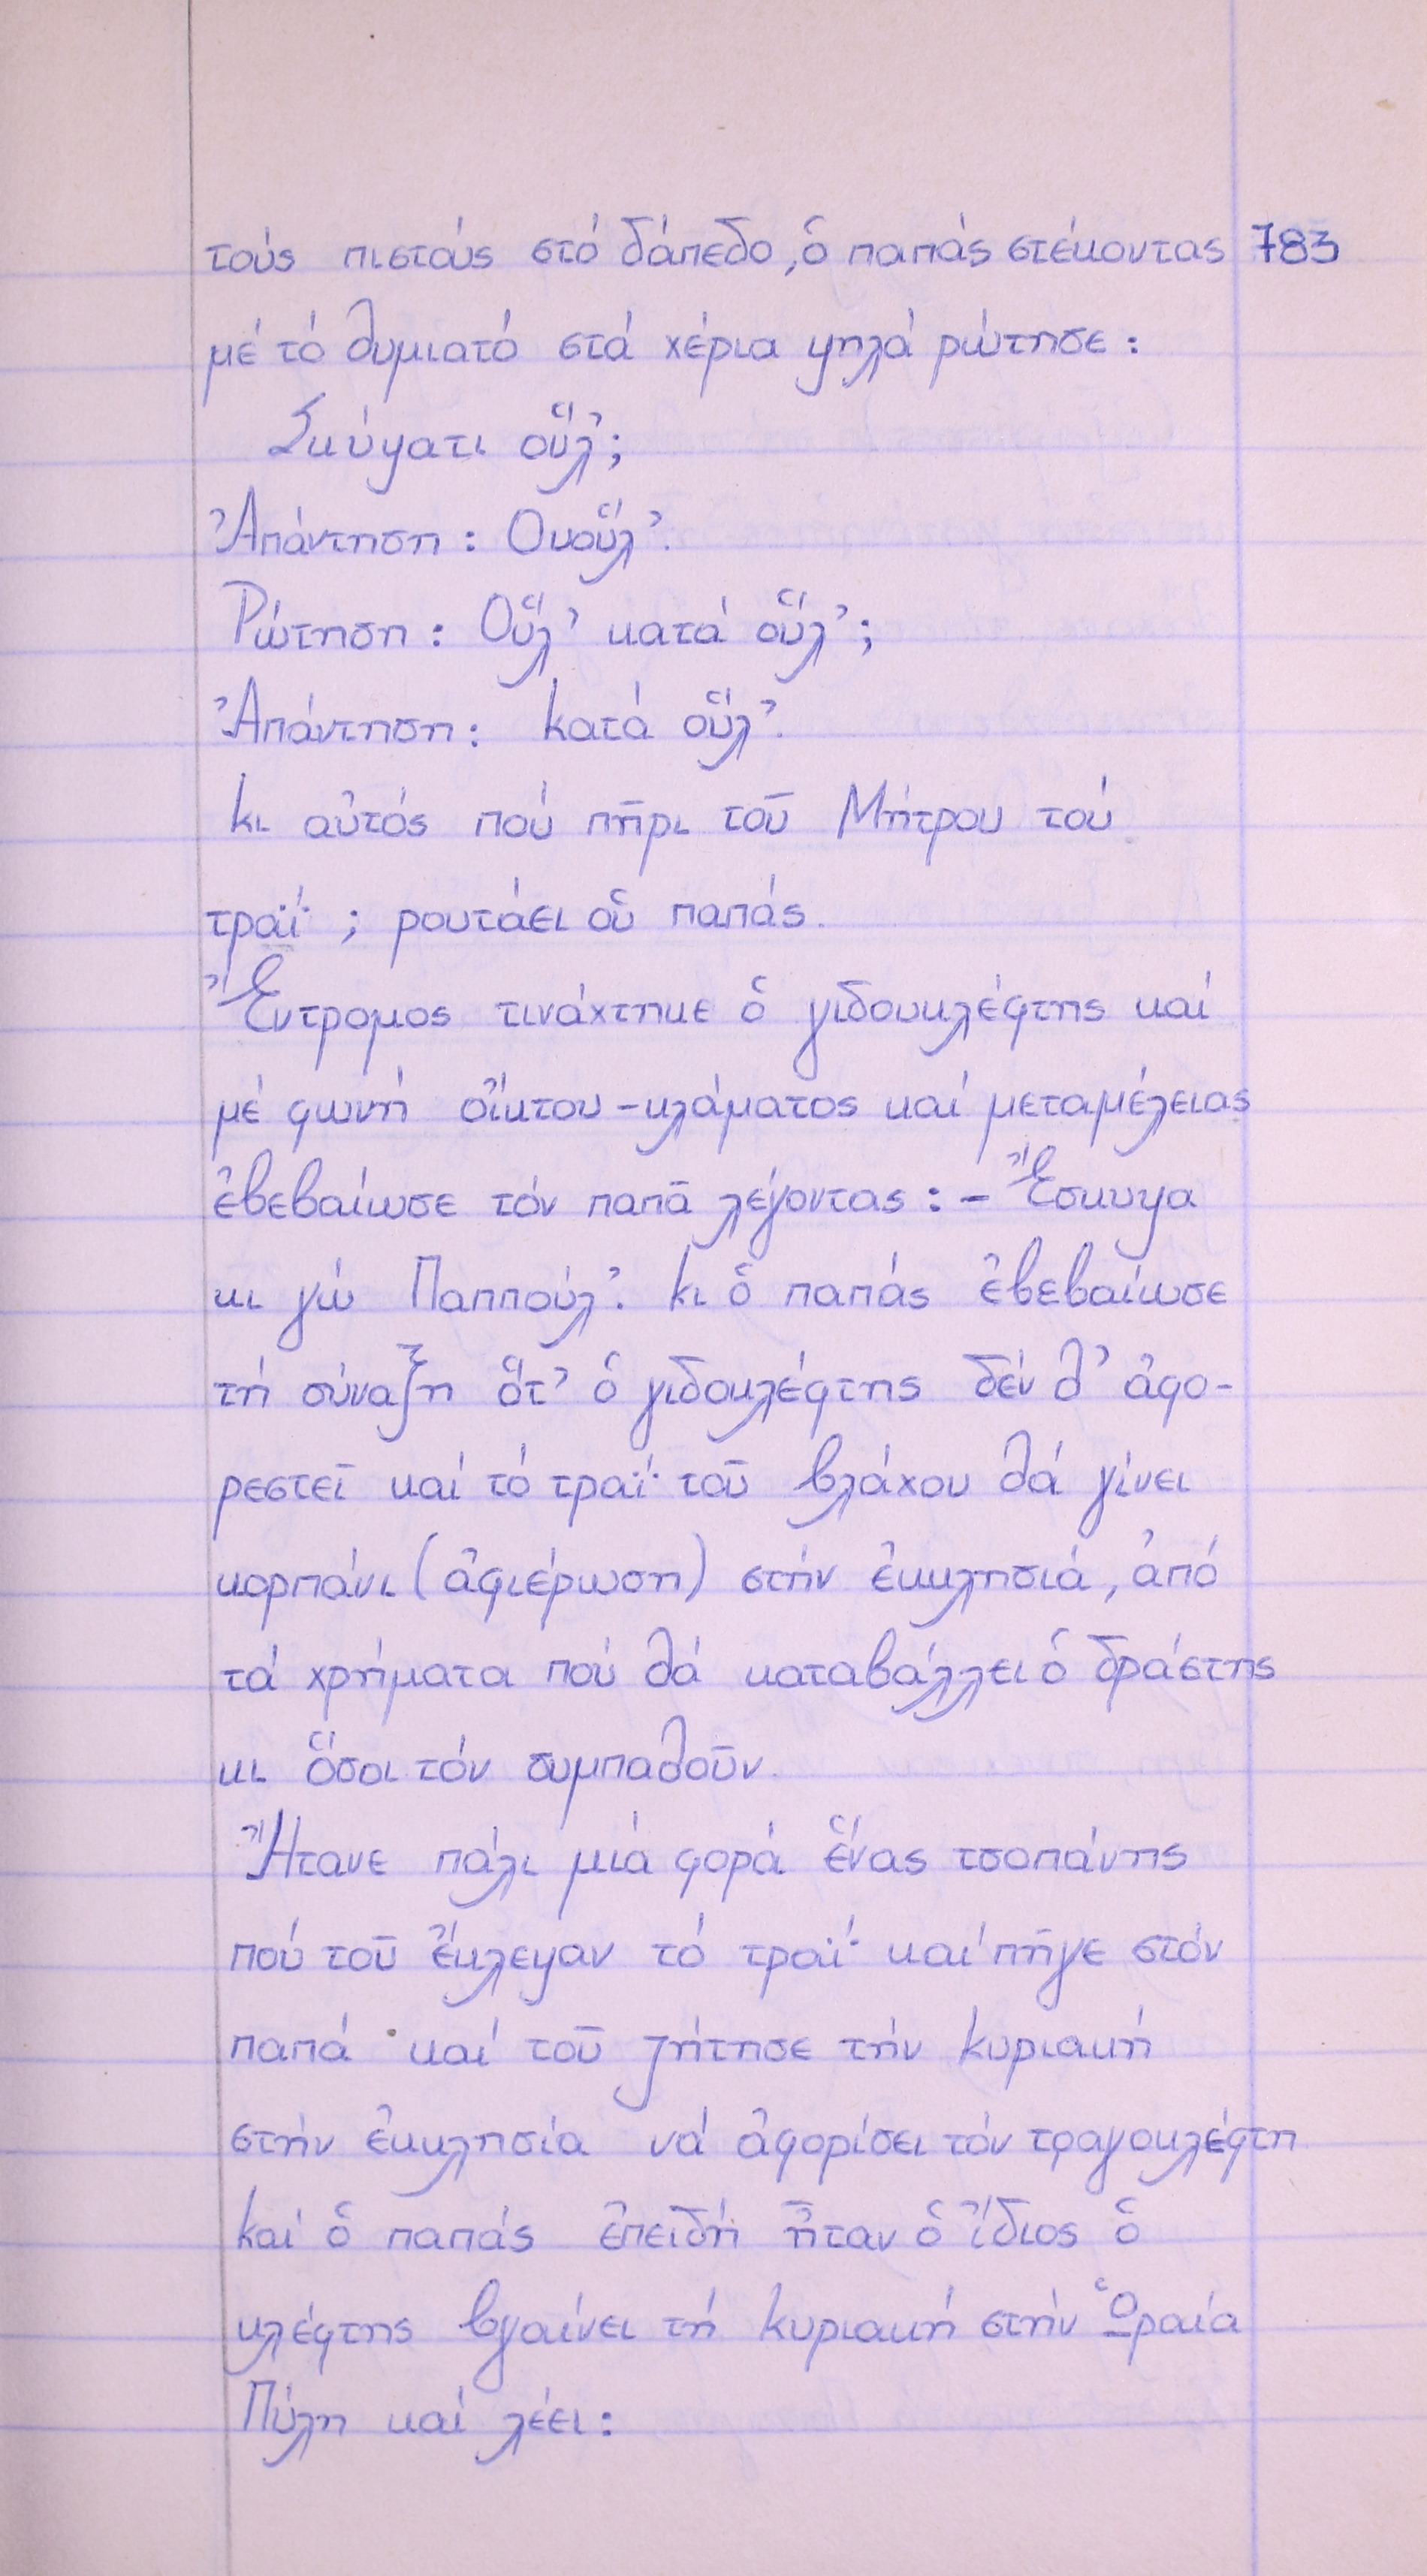 τούς πιστούς στό δάπεδο, ὁ παπάς στέκοντας 783
μέ τό θυμιατό στά χέρια ψηλά ρώτησε:
Σκύψατι οὕλ';
Ἀπάντηση: Ουοὕλ'.
Ρώτηση: Οὕλ' κατά οὕλ';
Ἀπάντηση: κατά οὕλ'.
κι αὐτός πού πῆρι τοῦ Μήτρου τού
τραΐ; ρουτάει οὑ παπάς.
Ἔντρομος τινάχτηκε ὁ γιδουκλέφτης καί
μέ φωνή οἴκτου-κλάματος καί μεταμέλειας
ἐβεβαίωσε τόν παπᾶ λέγοντας: - Ἔσκυψα
κι γώ Παππούλ'. κι ὁ παπάς ἐβεβαίωσε
τή σύναξη ὅτ' ὁ γιδοκλέφτης δέν θ' ἀφο-
ρεστεῖ καί τό τραΐ τοῦ βλάχου θά γίνει
κορπάνι (ἀφιέρωση) στήν ἐκκλησιά, ἀπό
τά χρήματα πού θά καταβάλλει ὁ δράστης
κι ὅσοι τόν συμπαθοῦν.
Ἤτανε πάλι μιά φορά ἕνας τσοπάνης
πού τοῦ ἔκλεψαν τό τραΐ καί πῆγε στόν
παπά καί τοῦ ζήτησε τήν κυριακή
στήν ἐκκλησία νά ἀφορίσει τόν τραγοκλέφτη
καί ὁ παπάς ἐπειδή ἦταν ὁ ἴδιος ὁ
κλέφτης βγαίνει τή κυριακή στήν Ὡραία
Πύλη καί λέει: